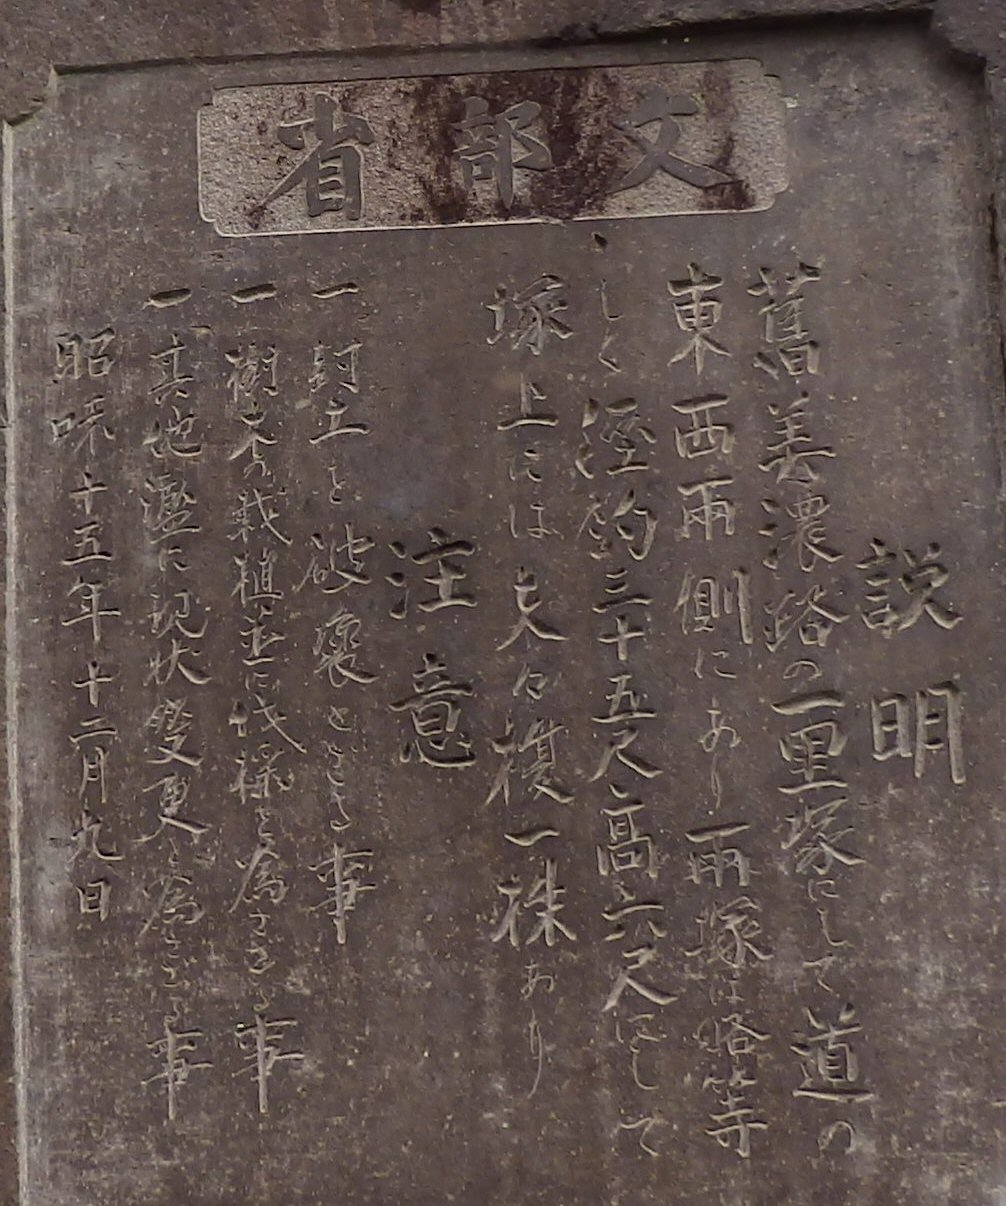 文部省
説明
舊美濃路の一里塚にして道の
東西兩側にあり兩塚は略等
しく徑約三十五尺高六尺にして
塚上には夫々榎一株あり
注意
一封土を破壞せざる事
一樹木の栽植並に伐採を為さざる事
一其他濫に現状變更を為さざる事
昭和十五年十二月九日